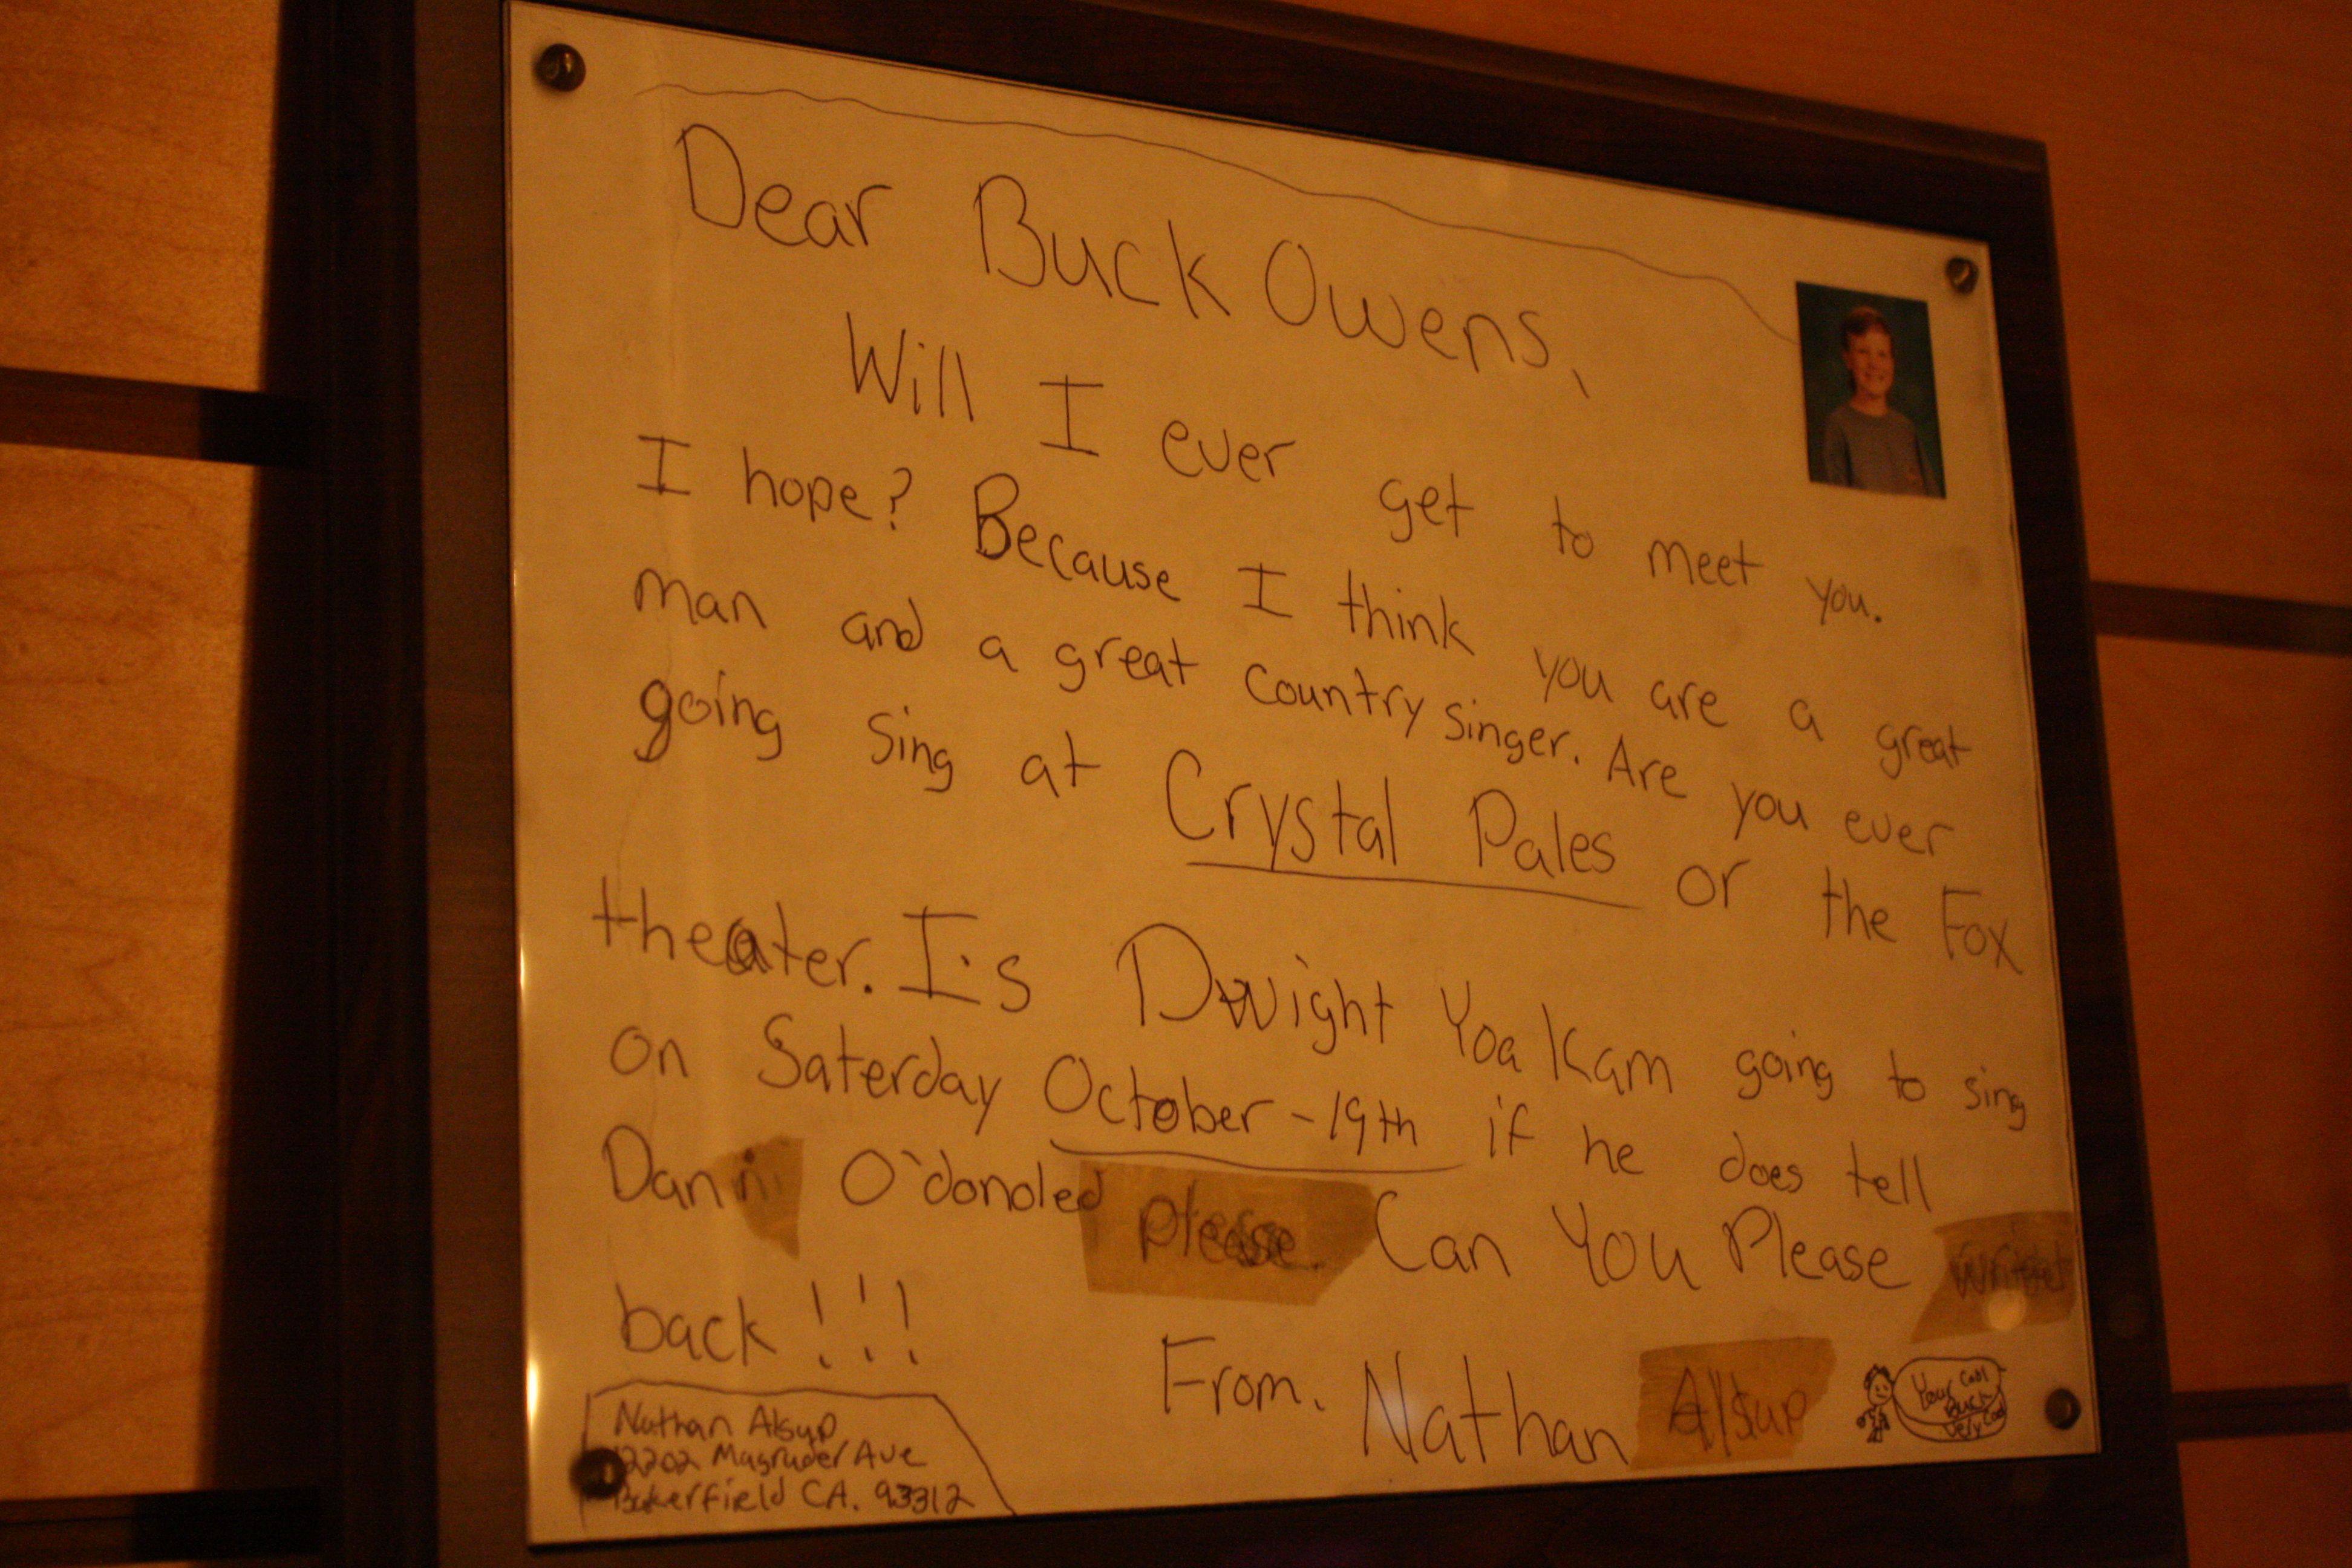 Dear Buck Owens,
Will I ever get to meet you.
I hope? Because I think you are a great
man and a great country singer. Are you ever
going sing at Crystal Pales or the Fox
theater. Is Dwight Yoakam going to sing
on Saterday October-19th if he does tell
Danni O'donoled please. Can You Please
back!!!
From, Nathan Alsup
Your Cool
Buck
Very Cool
Nathan Alsup
12202 Magruder Ave
Bakerfield CA. 93312